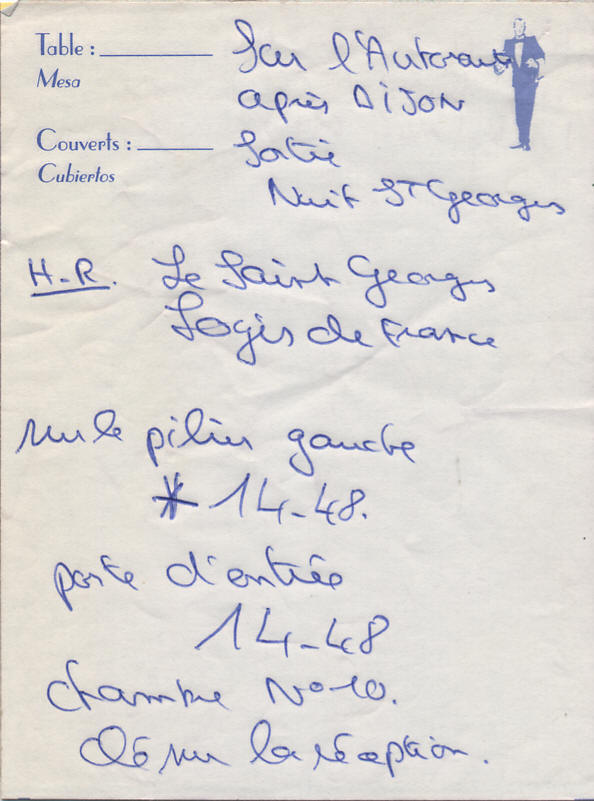 Table : Sur l'Autoroute
Mesa après DIJON
Couverts : Sortie
Cubiertos Nuit ST Georges
H-R. Le Saint Georges
Logis de France
sur le pilier gauche
* 14-48.
porte d'entrée
14-48
chambre N° 10.
Clé sur la réception.